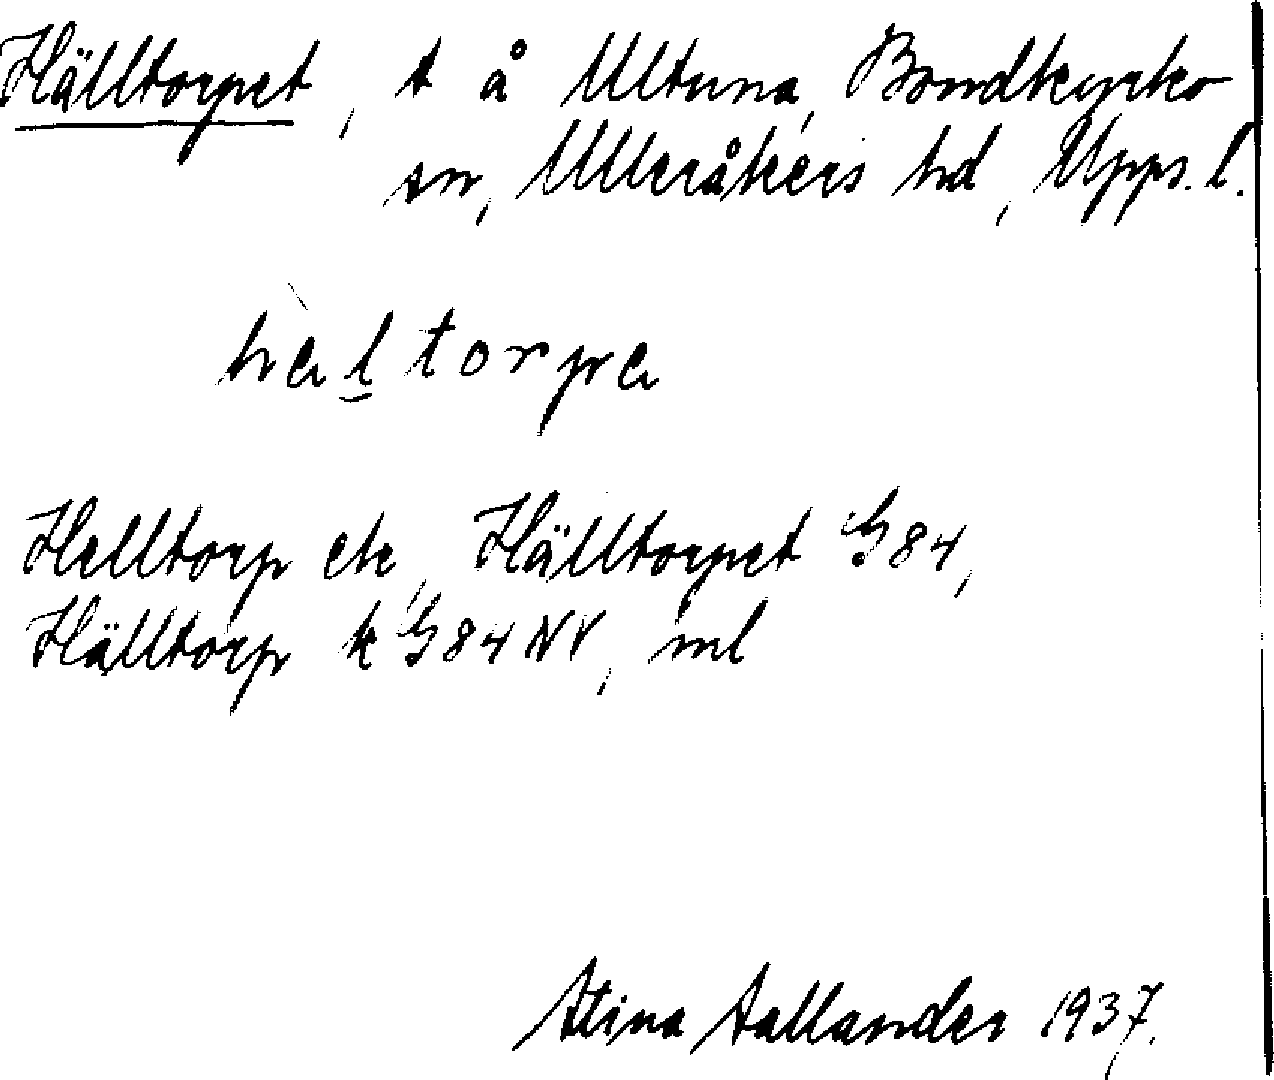 Hälltorpet, t å Ultuna, Bondkyrko
sn, Ulleråkers hd, Upps. l.
Helltorp ek, Hälltorpet G84,
Hälltorp k G84 NV, ml
Stina Sallander 1937.